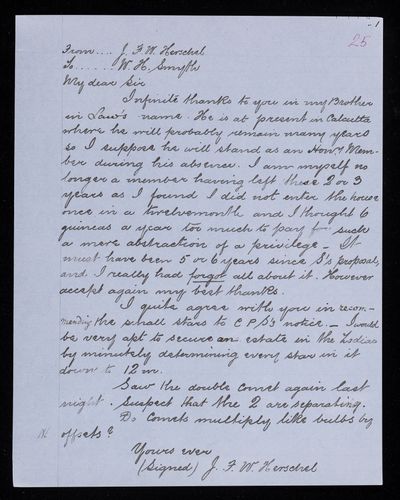 1
25
From .... J. F. W. Herschel
To ...... W. H. Smyth
My dear Sir
Infinite thanks to you in my Brother
in Law's name. He is at present in Calcutta
where he will probably remain many years
so I suppose he will stand as an Hony Mem-
ber during his absence. I am myself no
longer a member having left these 2 or 3
years as I found I did not enter the house
once in a twelvemonth and I thought 6
guineas a year too much to pay for such
a mere abstraction of a privilege _ It
must have been 5 or 6 years since S's proposal,
and I really had forgot all about it. However
accept again my best thanks.
I quite agree with you in recom-
mending the small stars to C P S's notice. _ I would
be very apt to secure an estate in the Zodiac
by minutely determining every star in it
down to 12 m.
Saw the double comet again last
night. Suspect that the 2 are separating.
Do Comets multiply like bulbs by
offsets?
Yours ever
(Signed) J. F. W. Herschel